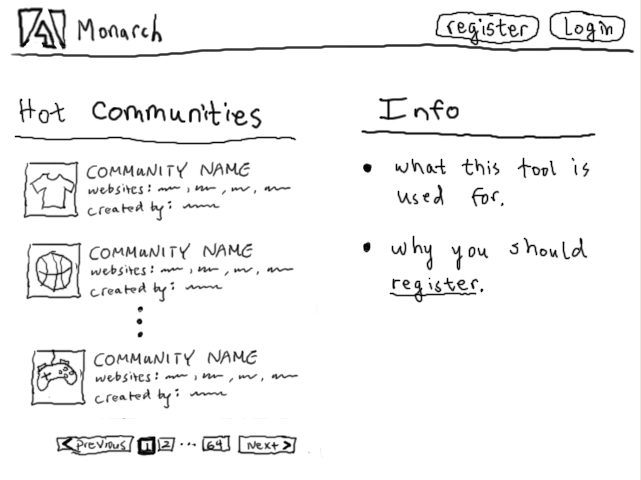 Monarch
register
Login
Hot Communities
COMMUNITY NAME
websites: , , ,
created by:
COMMUNITY NAME
websites: , , ,
created by:
COMMUNITY NAME
websites: , , ,
created by:
<Previous 1 2 ... 64 Next>
Info
• what this tool is
used for.
• why you should
register.